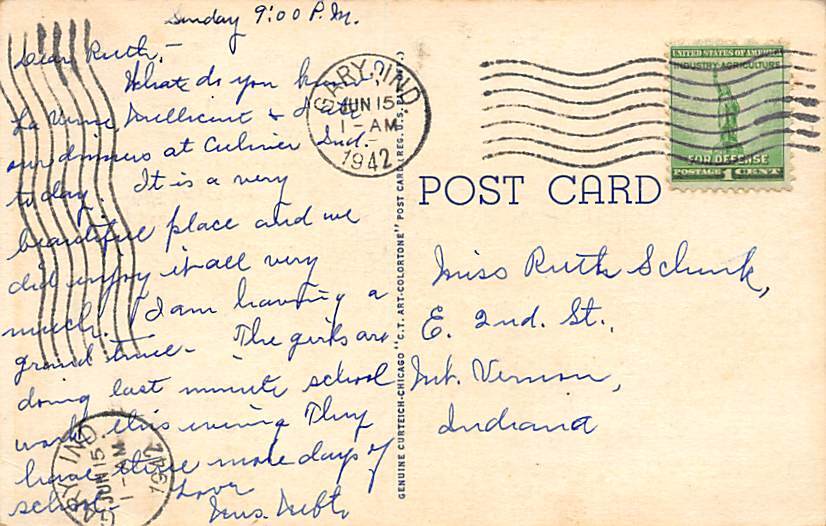 Sunday 9:00 P.M.
Dear Ruth,-
What do you know!
La Verne, Millicent & I ate
our dinners at Culiver Ind.-
today. It is a very
beautiful place and we
did enjoy it all very
much. I am having a
grand time- The girls are
doing last minute school
work this evening They
have three more days of
school- Love
Mrs.
GARY, IND.
JUN 15
1-AM
1942
GARY, IND.
JUN 15
1-AM
1942
GENUINE CURTEICH-CHICAGO "C.T. ART-COLORTONE" POST CARD (REG. U.S. PAT. OFF.)
UNITED STATES OF AMERICA
INDUSTRY AGRICULTURE
FOR DEFENSE
POSTAGE 1 CENT
POST CARD
Miss Ruth Schenk,
E. 2nd. St.,
Mt. Vernon,
Indiana